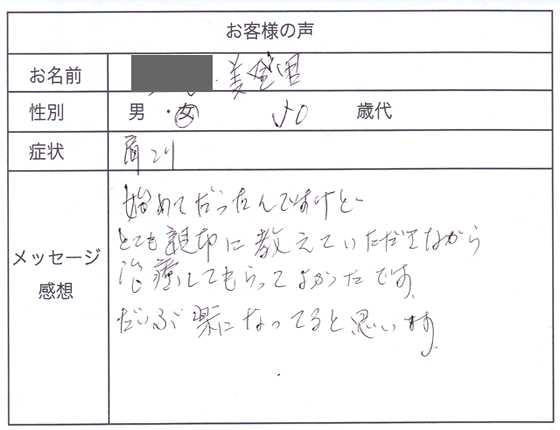 お客様の声
お名前 美登
性別 男・女 50 歳代
症状 肩こり
メッセージ
感想
始めてだったんですけど
とても親切に教えていただきながら
治療してもらってよかったです。
だいぶ楽になってると思います。